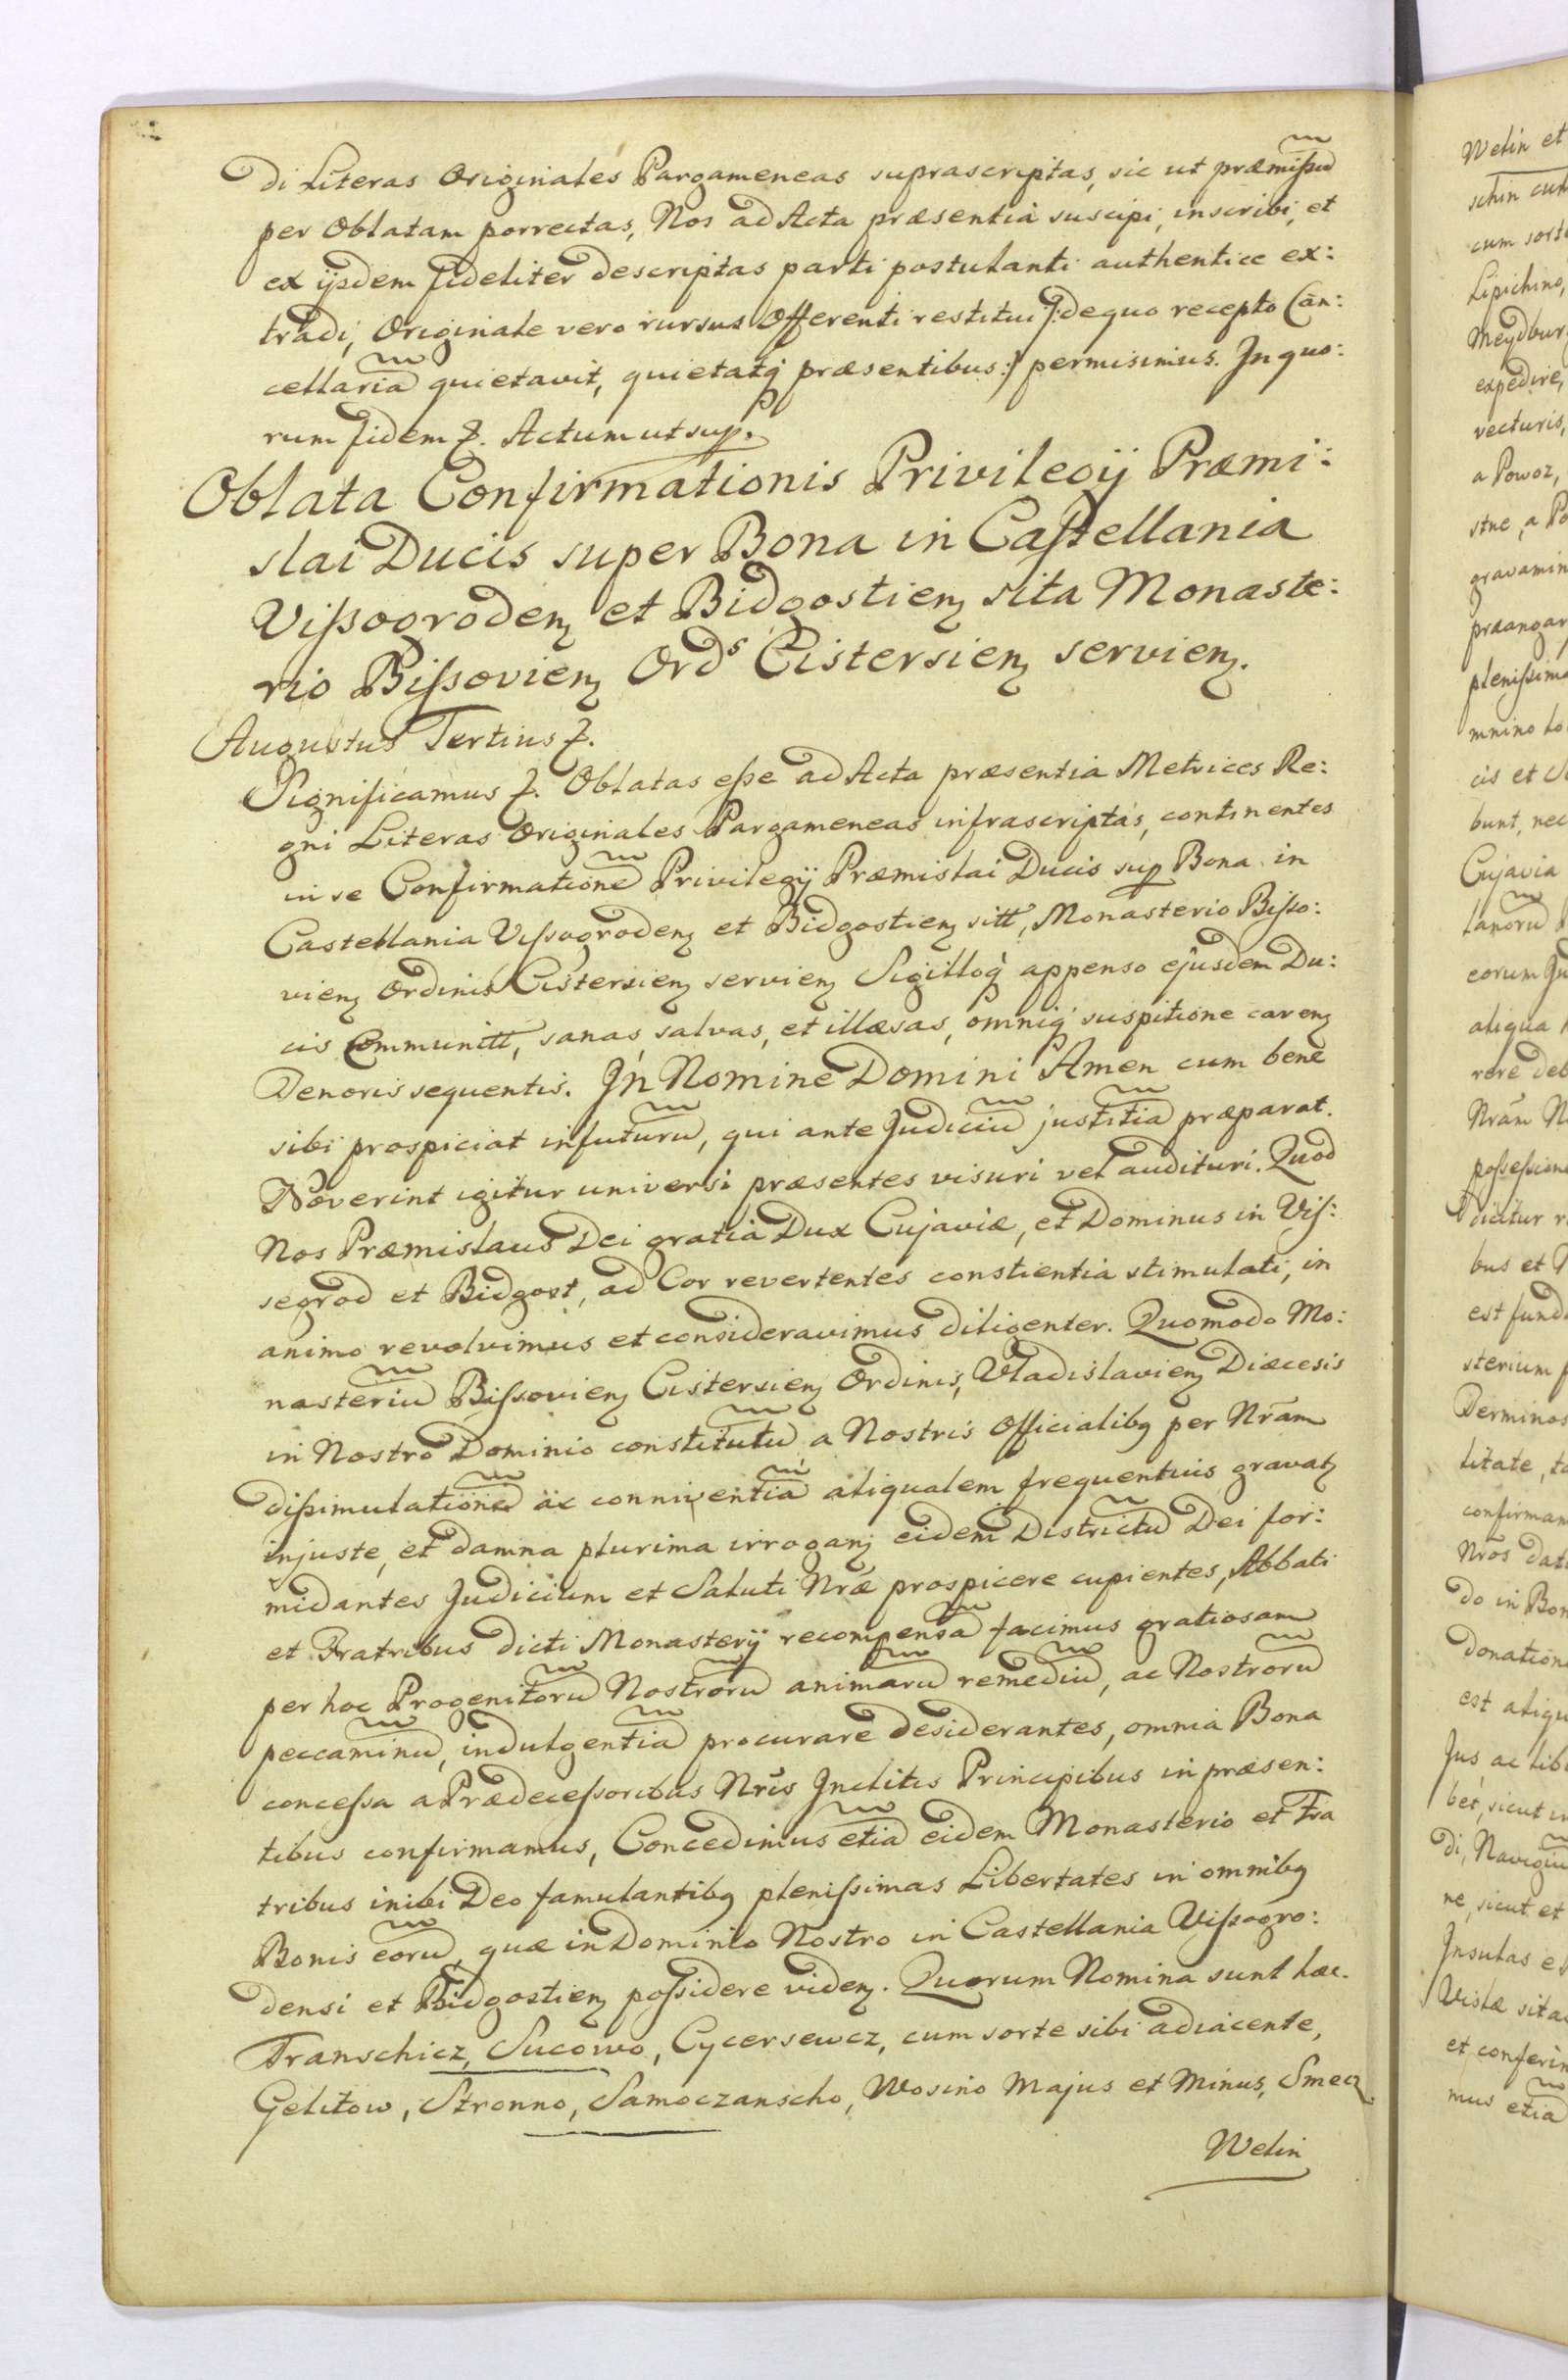 di Literas Originales Pargameneas suprascriptas, sic ut præmissũ
per Oblatam porrectas, Nos ad Acta præsentia suscipi, inscribi, et
ex ijsdem fideliter descriptas parti postulanti authentice ex:
tradi, Originale vero rursus Offerenti restitui /: de quo recepto Can:
cellariã quietavit, quietatq præsentibus :/ permisimus. In quo:
rum fidem &. Actum ut sup.
Oblata Confirmationis Privilegij Præmi:
slai Ducis super Bona in Castellania
Vissogrodenȝ et Bidgostienȝ sita Monaste:
rio Bissovienȝ Ordˢ Cistersienȝ servienȝ.
Augustus Tertius &.
Significamus &. Oblatas esse ad Acta præsentia Metrices Re:
gni Literas Originales Pargameneas infrascriptas, continentes
in se Confirmationẽ Privilegij Præmislai Ducis sup Bona in
Castellania Vissogrodenȝ et Bidgostienȝ sitt, Monasterio Bisso:
vienȝ Ordinis Cistersienȝ servienȝ Sigilloq appenso ejusdem Du:
cis Communitt, sanas, salvas, et illæsas, omniq suspitione carenȝ
Tenoris sequentis. In Nomine Domini Amen cum bene
sibi prospiciat in futurũ, qui ante Judiciũ justitiã præparat.
Noverint igitur universi præsentes visuri vel audituri. Quod
Nos Præmislaus Dei gratia Dux Cujaviæ, et Dominus in Vis:
segrod et Bidgost, ad Cor revertentes constientia stimulati, in
animo revolvimus et consideravimus diligenter. Quomodo Mo:
nasteriũ Bissovienȝ Cistersienȝ Ordinis, Vladislavienȝ Diæcesis
in Nostro Dominio constitutũ a Nostris Officialibȝ per Nram̃
dissimulationẽ ac conniventiã aliqualem frequentius gravatȝ
injuste, et damna plurima irroganȝ eidem Districtũ Dei for:
midantes Judicium et Saluti Nræ̃ prospicere cupientes, Abbati
et Fratribus dicti Monasterij recompensã facimus gratiosam
per hoc Progenitorũ Nostrorũ animarũ remediũ, ac Nostrorũ
peccaminũ, indulgentiã procurare desiderantes, omnia Bona
concessa a Prædecessoribus Nris̃ Inclitis Principibus in præsen:
tibus confirmamus, Concedimus etiã eidem Monasterio et Fra
tribus inibi Deo famulantibȝ plenissimas Libertates in omnibȝ
Bonis eorũ, quæ in Dominio Nostro in Castellania Vissogro:
densi et Bidgostienȝ possidere videnȝ. Quorum Nomina sunt hæc.
Transchicz, Sucowo, Cycersewcz, cum sorte sibi adiacente,
Gelitow, Stronno, Samoczanscho, Wosino Majus et Minus, Smecz
Welin
Welin et
schin cum
cum sorte
Lipichino,
Meydbur
expedire,
vecturis,
a Powoz,
stne, a Po
gravamin
præangar
plenissima
mnino to
cis et
bunt, nec
Cujavia
lanorũ
eorum Ju
aliqua
rere deb
Nram̃ N
possession
dicitur
bus et
est fund
sterium
Terminos
litate,
confirmam
Nros̃ dat
do in Bon
donation
est aliqu
Jus ac lib
bet, sicut
di, Navigiũ
ne, sicut et
Insulas et
Vislæ sita
et conferim
mus etiã